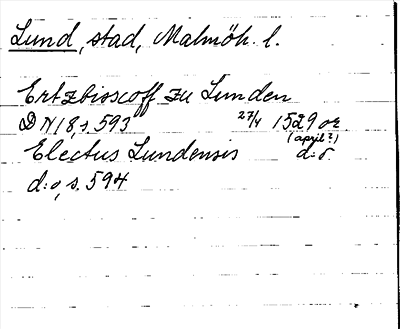 Lund, stad, Malmöh. l.
Ertzbisscoff zu Lunden
DN 18, s. 593 27/4 1529 or
(april?)
Electus Lundensis d:o
d:o, s. 594